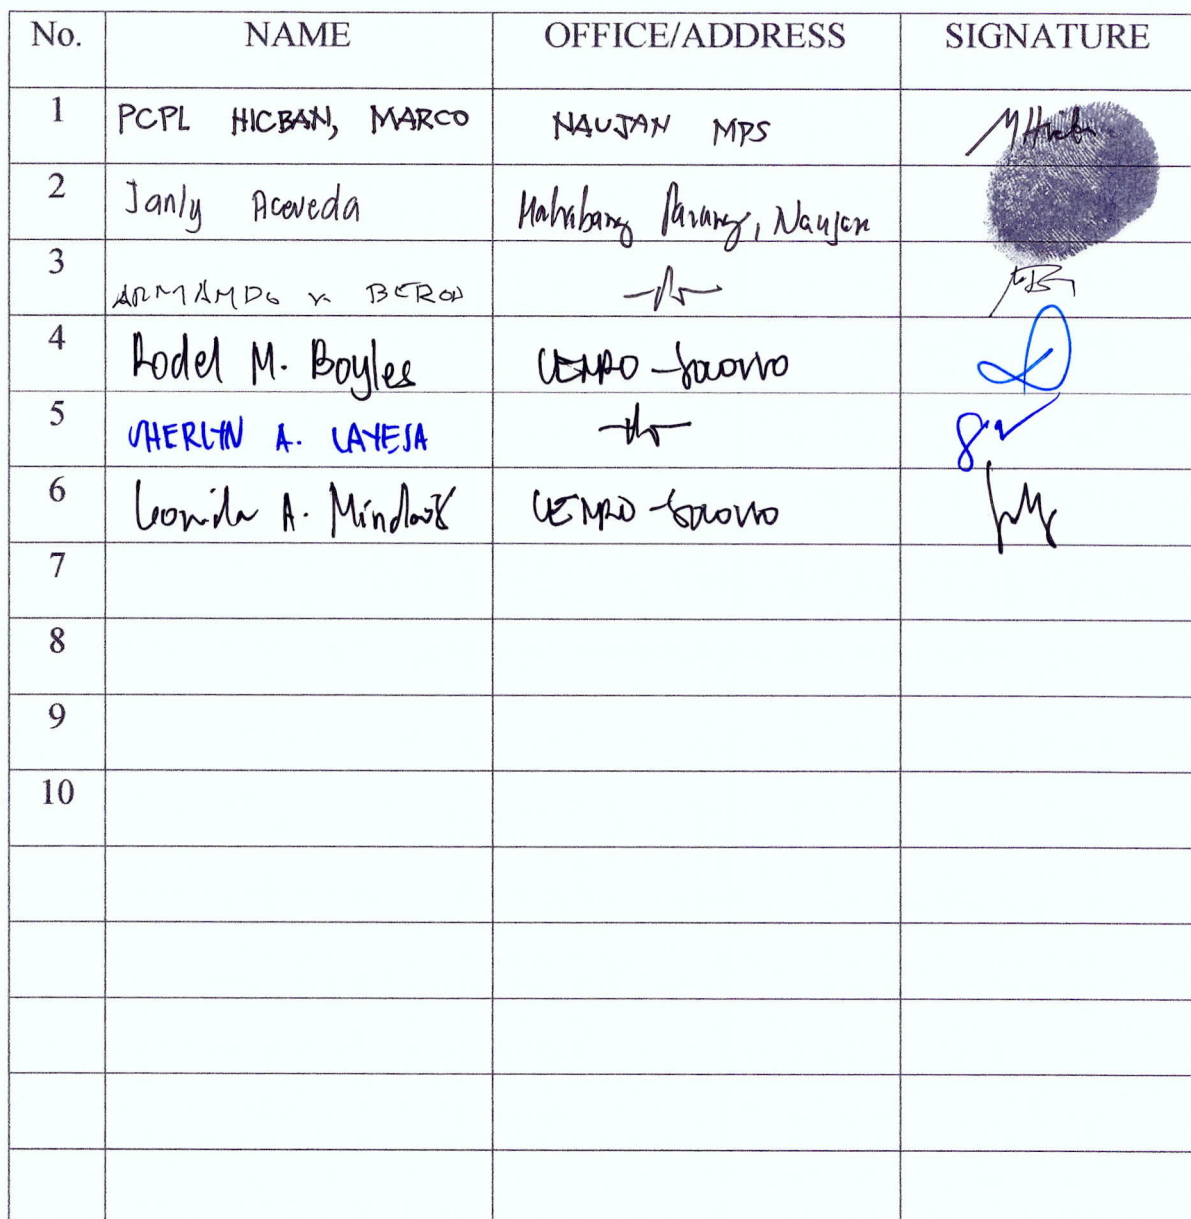 No. NAME OFFICE/ADDRESS SIGNATURE
1 PCPL HICBAN, MARCO NAUJAN MPS
2 Janly Aceveda Mahabang Parang, Naujan
3 ARMANDO V. BEROS
4 Rodel M. Boyles CENRO-Socorro
5 SHERLYN A. LAYESA
6 Leonida A. CENRO-Socorro
7
8
9
10